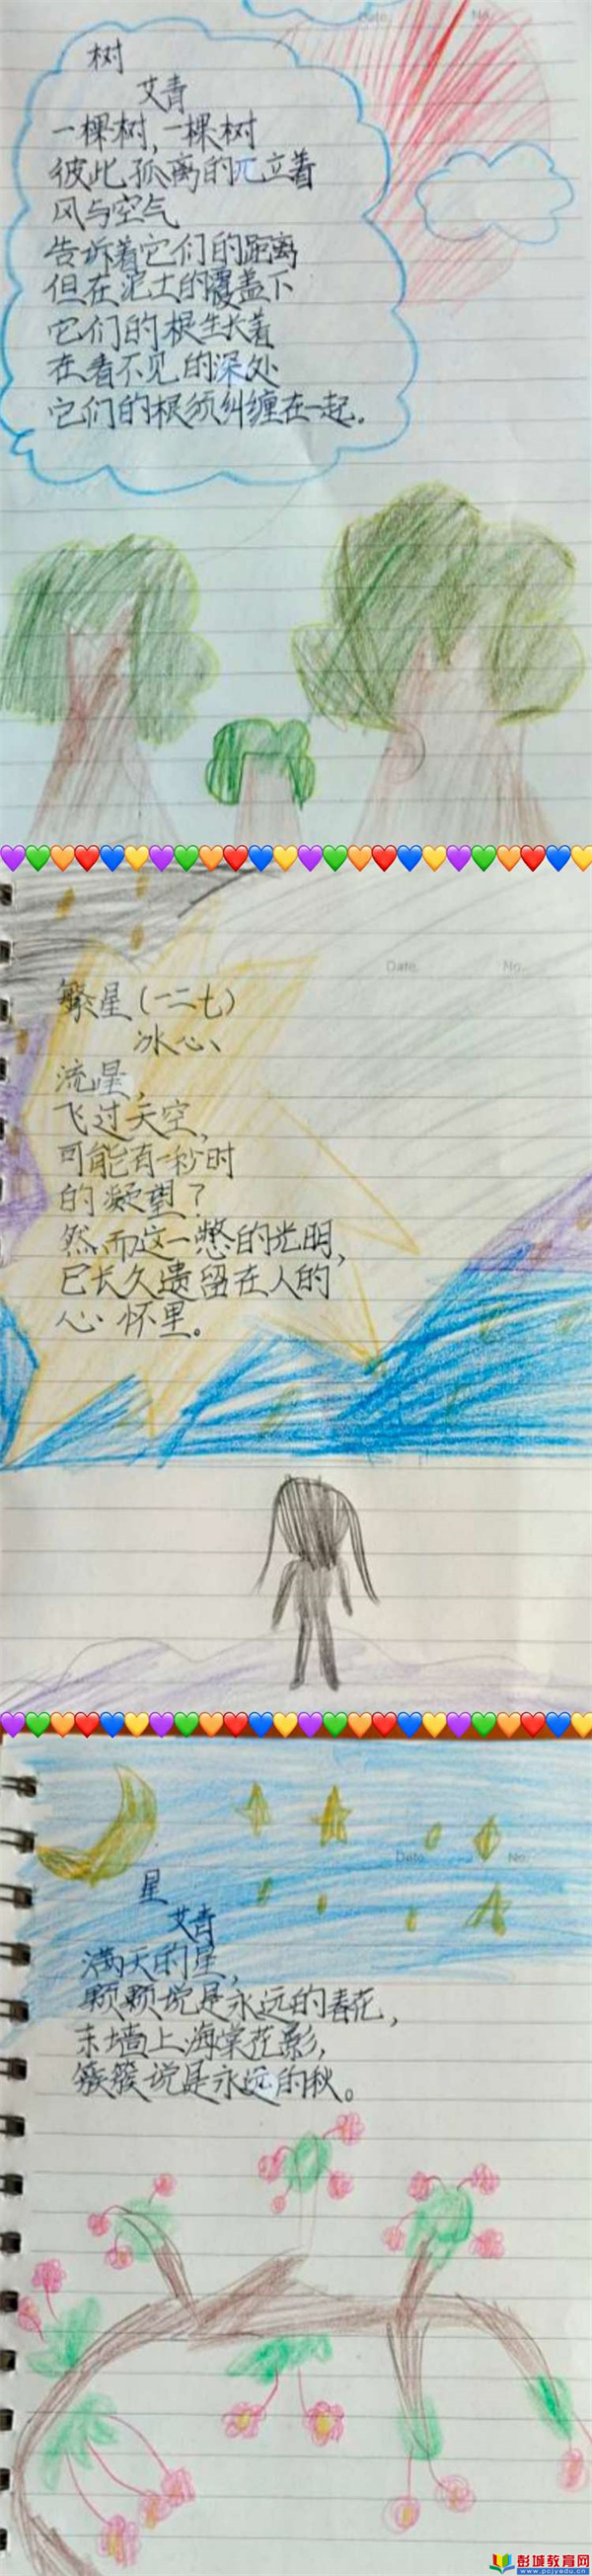 Date.
No.
树
艾青
一棵树,一棵树
彼此孤离的兀立着
风与空气
告诉着它们的距离
但在泥土的覆盖下
它们的根生长着
在看不见的深处
它们的根须纠缠在一起。
Date.
No.
繁星(一二七)
冰心、
流星,
飞过天空,
可能有一秒时
的凝望?
然而这一瞥的光明,
已长久遗留在人的
心怀里。
Date.
No.
星
艾青
满天的星,
颗颗说是永远的春花,
东墙上海棠花影,
簇簇说是永远的秋。
彭城教育网
www.pcjyedu.cn